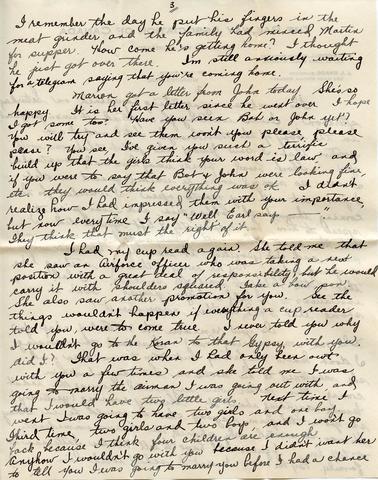 3
I remember the day he put his fingers in the
meat grinder and the family had minced Martin
for supper. How come he's getting home? I thought
he just got over there. I'm still anxiously waiting
for a telegram saying that you're coming home.
Marion got a letter from John today. She's so
happy. It is her first letter since he went over. I hope
I got some too. Have you seen Bob or John yet?
You will try and see them won't you please, please
please? You see, I've given you such a terrific
build up that the girls think your word is law and
if you were to say that Bob & John were looking fine,
etc. they would think everything was ok. I didn't
realize how I had impressed them with your importance,
but now everytime I say "Well Earl says
They think that must the right of it.
I had my cup read again. She told me that
she saw an Airforce officer who was taking a new
position with a great deal of responsibility but he would
carry it with shoulders squared. Take a bow son.
She also saw another promotion for you. Gee the
things wouldn't happen if everything a cup reader
told you, were to come true. I never told you why
I wouldn't go to the Koran to that Gypsy with you.
did I? That was when I had only been out
with you a few times and she told me I was
going to marry the airman I was going out with and
that I would have two little girls. Next time I
went I was going to have two girls and one boy.
Third time, two girls and two boys, and I won't go
back because I think four children are enough.
Anyhow I wouldn't go with you because I didn't want her
to tell you I was going to marry you before I had a chance